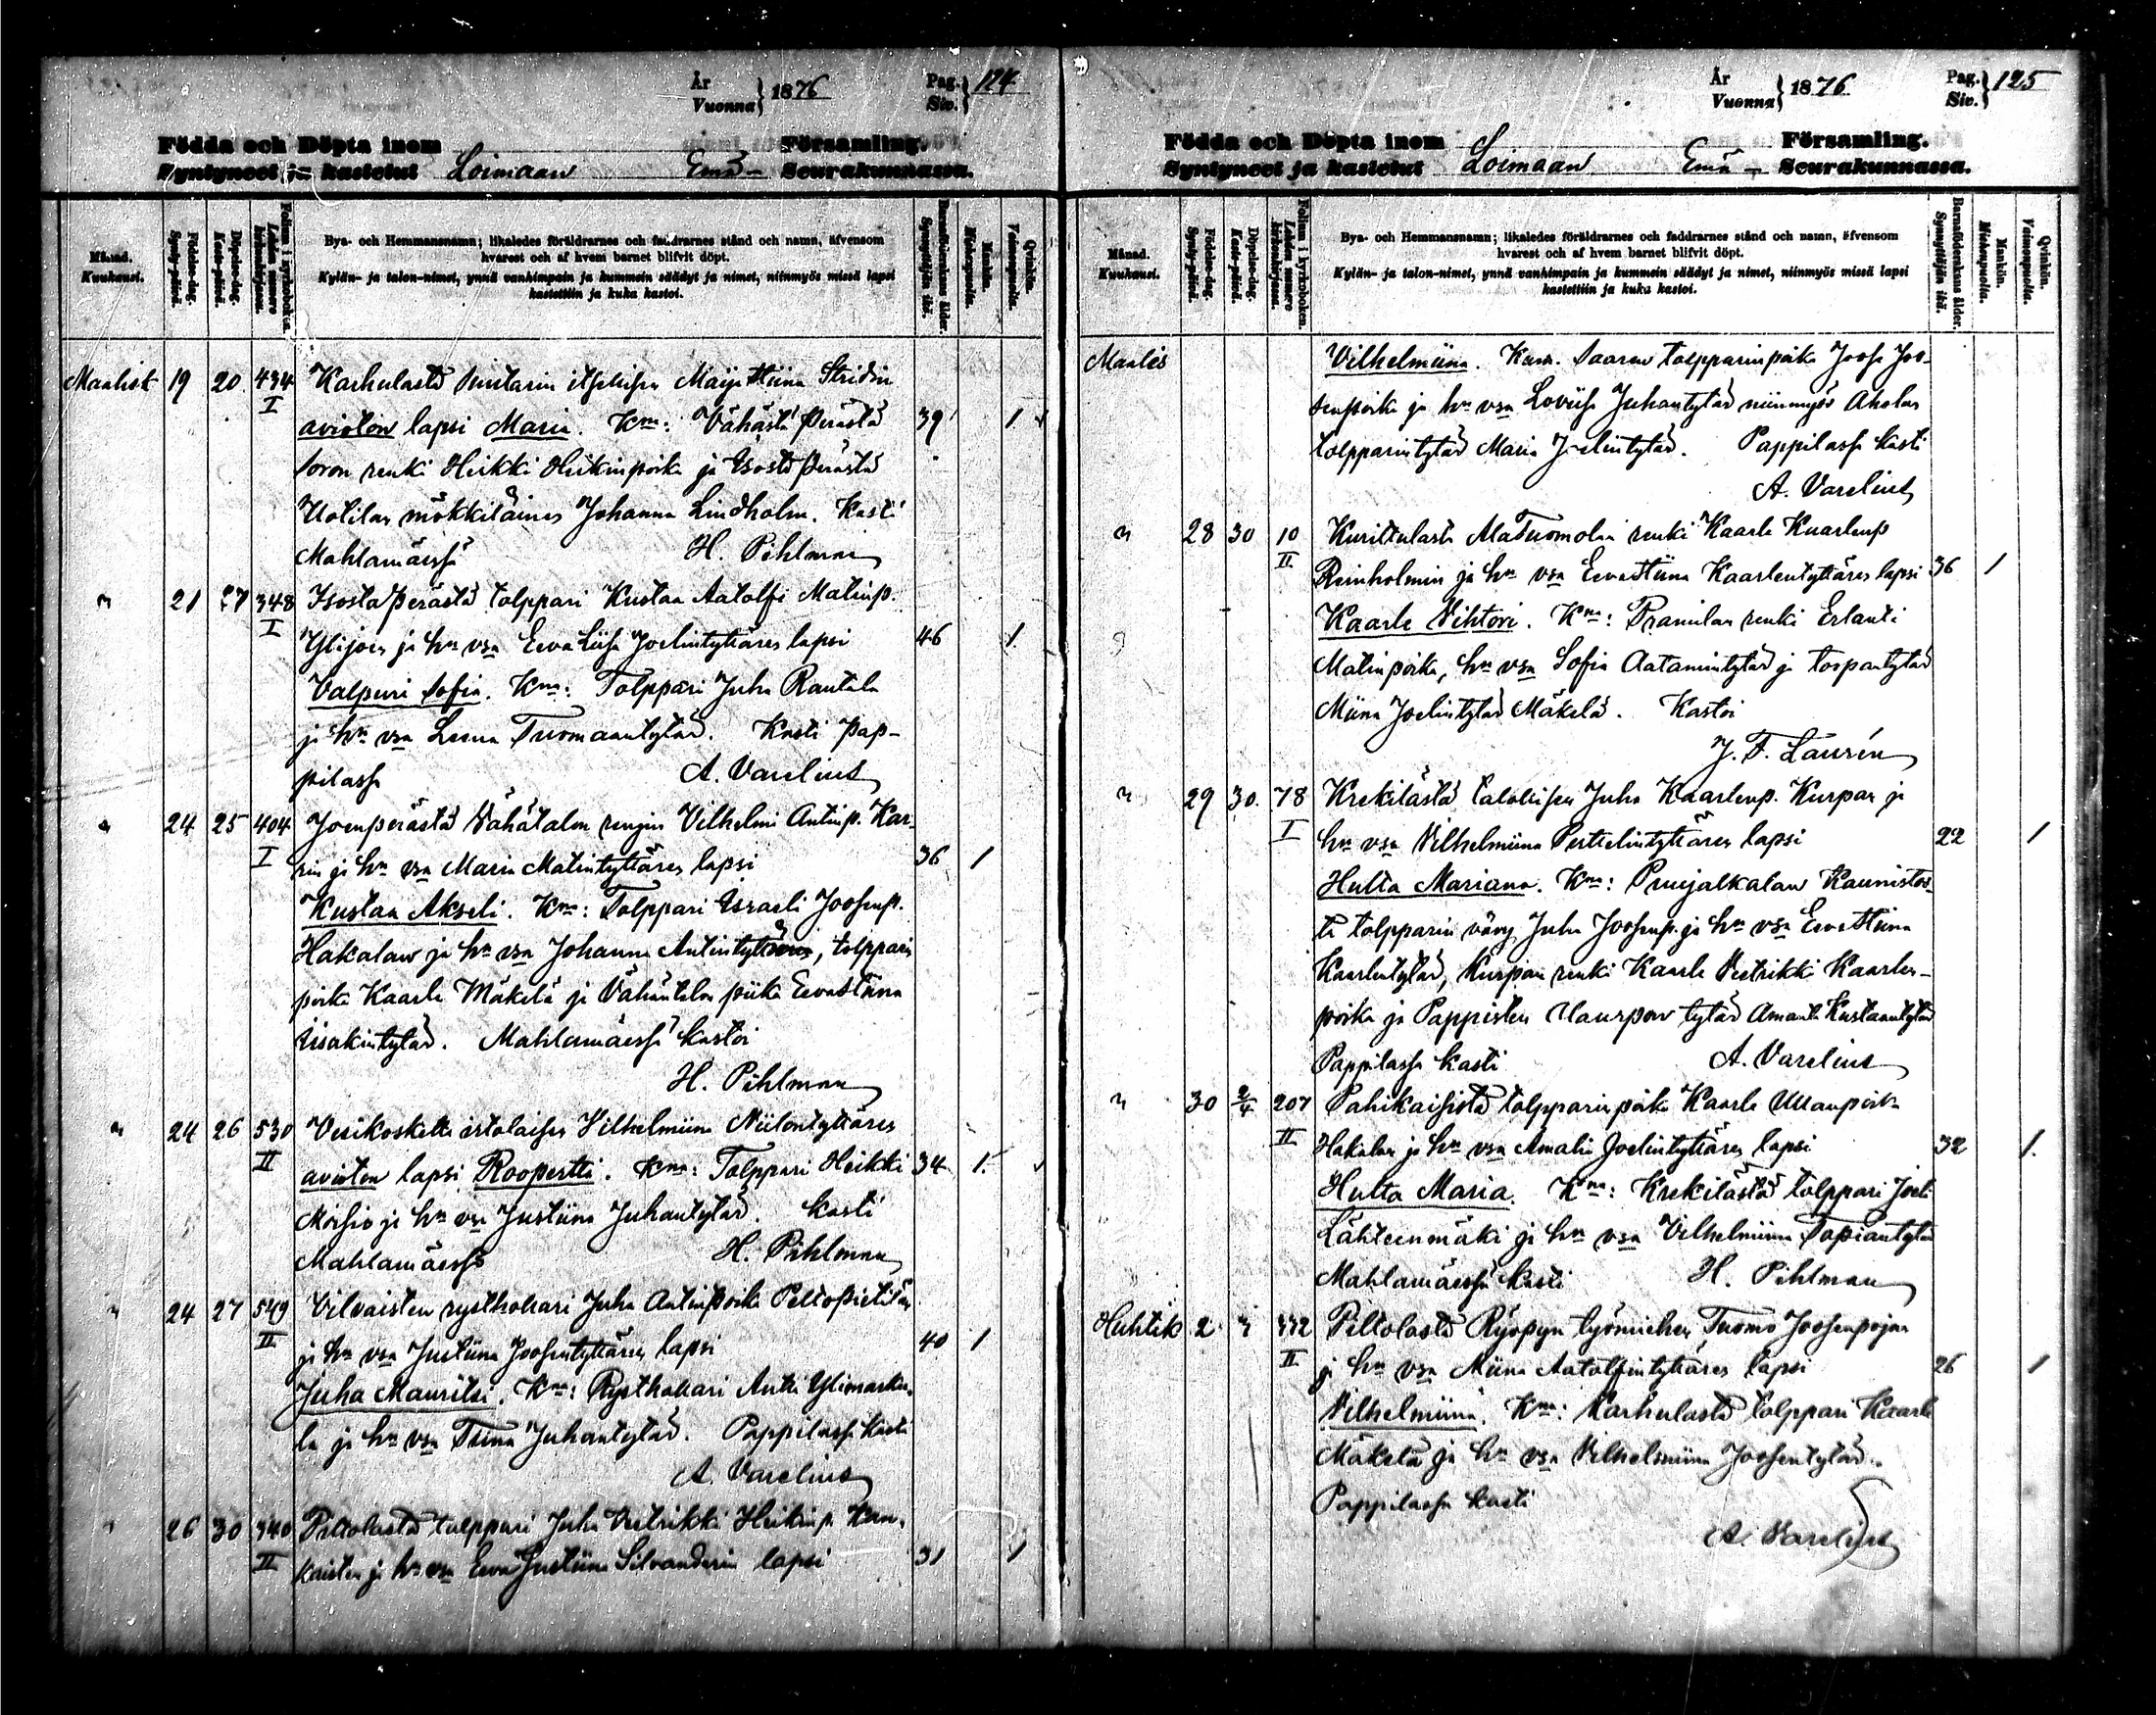 År
Vuonna } 1876
Pag.
Siv. } 124
Födda och Döpta inom Församling.
Syntyneet ja kastetut Loimaan Emä- Seurakunnassa.
Månad.
Kuukausi.
Födelse-dag.
Synty-päivä.
Döpelse-dag.
Kaste-päivä.
Folium i kyrkoboken.
Lehden numero kirkonkirjassa.
Bya- och Hemmansnamn; likaledes föräldrarnes och faddrarnes stånd och namn, äfvensom
hvarest och af hvem barnet blifvit döpt.
Kylän- ja talon-nimet, ynnä vanhimpain ja kummein säädyt ja nimet, niinmyös missä lapsi
kastettiin ja kuka kastoi.
Barnaföderskans ålder.
Synnyttäjän ikä.
Mankön.
Miehenpuolia.
Qvinkön.
Vaimonpuolia.
Maalisk 19 20 434 Karhulasta itsellisen Maija Stiina Stridin
I avioton lapsi Maria. Km: Vähästä Perästä 39 1
Soron renki Heikki Heikinpoika ja Isosta Perästä
Uotilan mökkiläinen Johanna Lindholm. Kasti
Mahlamäessä H. Pihlman
" 21 27 348 Isosta Perästä tolppari Kustaa Aatolfi Matinp.
I Ylijoen ja hn vsa Eeva Liisa Joelintyttären lapsi 46 1
Valpuri Sofia. Km: Tolppari Juha Rautala
ja hn vsa Leena Tuomaantytär. Kasti Pap-
pilassa A. Varelius
" 24 25 404 Joenperästä Vähätalon rengin Vilhelmi Antinp. Kar-
I rin ja hn vsa Maria Matintyttären lapsi 36 1
Kustaa Akseli. Km: Tolppari Israeli Joosenp.
Hakalan ja hn vsa Johanna Antintyttären, tolpparin
poika Kaarle Mäkelä ja Vähäntalon piika Eevastiina
Iisakintytär. Mahlamäessä kastoi
H. Pihlman
" 24 26 530 Vesikoskelta irtolaisen Vilhelmiina Niilontyttären
II avioton lapsi Roopertti. Km: Tolppari Heikki 34 1
Moisio ja hn vsa Justiina Juhantytär. Kasti
Mahlamäessä H. Pihlman
" 24 27 549 Vilvaisten rysthollari Juha Antinpoika Peltopietilän
II ja hn vsa Justiina Joosentyttären lapsi 40 1
Juha Mauritsi. Km: Rysthollari Antti Ylimarku-
la ja hn vsa Tiina Juhantytär. Pappilassa kasti
A. Varelius
" 26 30 340 Peltolasta tolppari Juha Vretrikki Heikinp. Kan-
II kaisten ja hn vsa Eeva Justiina Silvanderin lapsi 31 1
År
Vuonna } 1876
Pag.
Siv. } 125
Födda och Döpta inom Församling.
Syntyneet ja kastetut Loimaan Emä- Seurakunnassa.
Månad.
Kuukausi.
Födelse-dag.
Synty-päivä.
Döpelse-dag.
Kaste-päivä.
Folium i kyrkoboken.
Lehden numero kirkonkirjassa.
Bya- och Hemmansnamn; likaledes föräldrarnes och faddrarnes stånd och namn, äfvensom
hvarest och af hvem barnet blifvit döpt.
Kylän- ja talon-nimet, ynnä vanhimpain ja kummein säädyt ja nimet, niinmyös missä lapsi
kastettiin ja kuka kastoi.
Barnaföderskans ålder.
Synnyttäjän ikä.
Mankön.
Miehenpuolia.
Qvinkön.
Vaimonpuolia.
Maalis Vilhelmiina. Kum. Saaren tolpparinpoika Joose Joo-
senpoika ja hn vsa Loviisa Juhantytär niinmyös Aholan
tolpparintytär Maria Joelintytär. Pappilassa kasti
A. Varelius
" 28 30 10 Kurittulasta AlaTuomolan renki Kaarle Kaarlenp
II Reinholmin ja hn vsa Eevastiina Kaarlentyttären lapsi 36 1
Kaarle Vihtori. Km: renki Erlanti
Matinpoika, hn vsa Sofia Aatamintytär ja torpantytär
Miina Joelintytär Mäkelä. Kastoi
J. F. Laurén
" 29 30. 78 Krekilästä talollisen Juha Kaarlenp. Kurpan ja
I hn vsa Vilhelmiina Perttelintyttären lapsi 22 1
Hulta Mariana. Km: Puujalkalan Kaunistos-
ta tolpparin vävy Juha Joosenp. ja hn vsa Eevastiina
Kaarlentytär, Kurpan renki Kaarle Vretrikki Kaarlen-
poika ja Pappisten tytär Amanta Kustaantytär
Pappilassa kasti A. Varelius
" 30 2/4 207 Pahikaisista tolpparinpoika Kaarle Ullanpoika
II Hakalan ja hn vsa Amalia Joelintyttären lapsi 32 1.
Hulta Maria. Km: Krekilästä tolppari Joeli
Lähteenmäki ja hn vsa Vilhelmiina Tapiantytär
Mahlamäessä kasti H. Pihlman
Huhtik 2 " 332 Peltolasta Ryöpyn työmiehen Tuomo Joosenpojan
II ja hn vsa Miina Aatolfintyttären lapsi 26 1
Vilhelmiina. Km: Karhulasta tolppari Kaarle
Mäkelä ja hn vsa Vilhelmiina Joosentytär.
Pappilassa kasti
A. Varelius